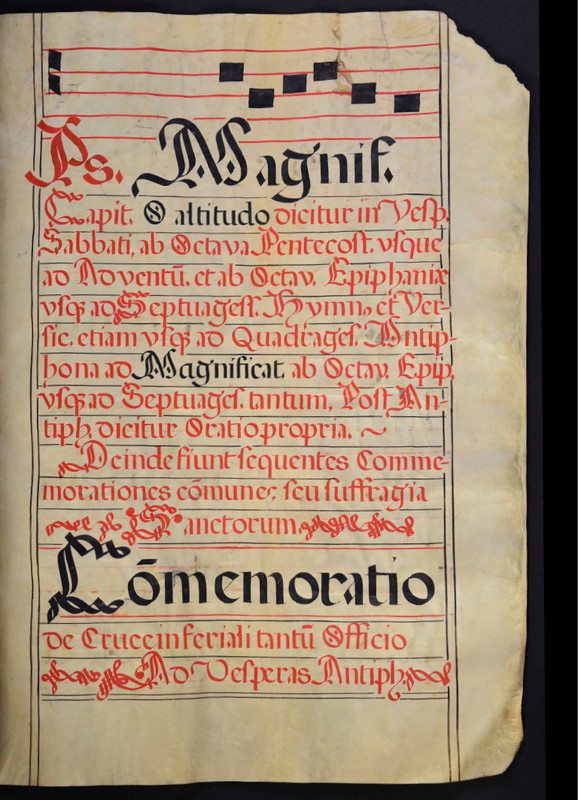 Ps. Magnif.
Capit. O altitudo dicitur in Vesp.
Sabbati, ab Octava Pentecost. vsque
ad Adventū. et ab Octav. Epiphaniæ
vsq; ad Septuagess. Hymn. et Ver-
sic. etiam vsq; ad Quadrages. Antip-
hona ad Magnificat, ab Octav. Epip.
vsq; ad Septuages. tantum. Post An-
tiph. dicitur Oratio propria.
Deinde fiunt sequentes Comme-
morationes cōmunes seu suffragia
Sanctorum
Cōmemoratio
de Cruce in feriali tantū Officio
Ad Vesperas Antiph.